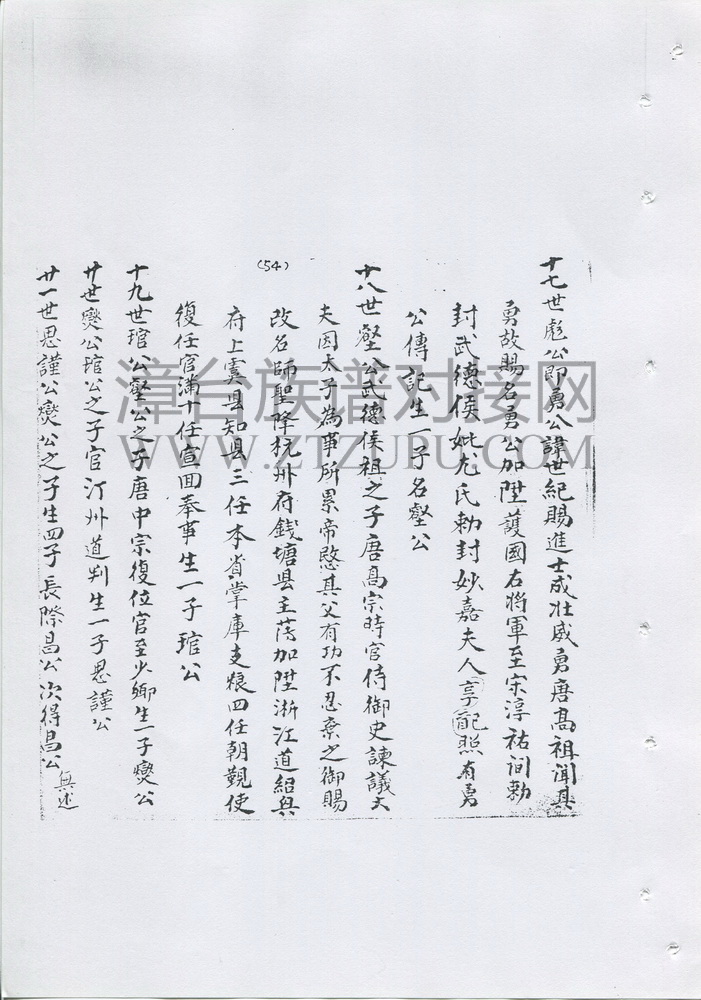 十七世彪公即勇公諱世紀賜進士成壯威勇唐高祖聞其
勇故賜名勇公加陞護國右將軍至宋淳祐间勅
封武德侯妣尤氏勅封妙嘉夫人享配照有勇
公傳記生一子名壑公
十八世壑公武德侯祖之子唐高宗時官侍御史諫議大
夫因太子為事所累帝愍其父有功不忍棄之御賜
改名師聖降杭州府錢塘县主簿加陞浙江道紹興
府上虞县知县三任本省掌庫支粮四任朝觐使
復任官滿十任宣回奉事生一子琯公
十九世琯公壑公之子唐中宗復位官至少卿生一子爕公
廿世爕公琯公之子官汀州道判生一子思謹公
廿一世思謹公爕公之子生四子長際昌公次得昌公無述
(54)
漳台族谱对接网
WWW.ZTZUPU.COM